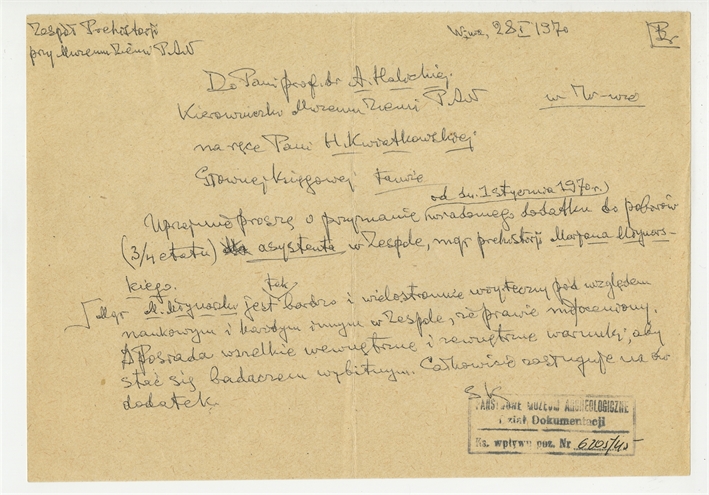 Zespół Prehistorji
przy Muzeum Ziemi PAN
W-wa, 28 I 1970
Do Pani prof. dr A. Halickiej.
Kierowniczki Muzeum Ziemi PAN
w W-wie
na ręce Pani H. Kwiatkowskiej
Głównej Księgowej tamże
od dn. 1 stycznia 1970 r.)
Uprzejmie proszę o przyznanie (wiadomego dodatku do poborów
(3/4 etatu) asystenta w Zespole, mgr prehistorji Marjana Młynars-
kiego.
tak
Mgr M. Młynarski jest bardzo i wielostronnie użyteczny pod względem
naukowym i każdym innym w Zespole, że prawie nieoceniony.
Posiada wszelkie wewnętrzne i zewnętrzne warunki, aby
stać się badaczem wybitnym. Całkowicie zasługuje na ów
dodatek
SK
PAŃSTWOWE MUZEUM ARCHEOLOGICZNE
Dział Dokumentacji
Ks. wpływu poz. Nr 6205/45